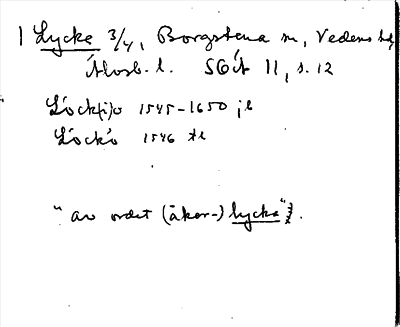 1 Lycke 3/4, Borgstena sn, Vedens hd,
Älvsb. l. SOÄ 11, s. 12
Löck(i)o 1545-1650 jb
Löckö 1546 tl
"av ordet (åker-) lycka".